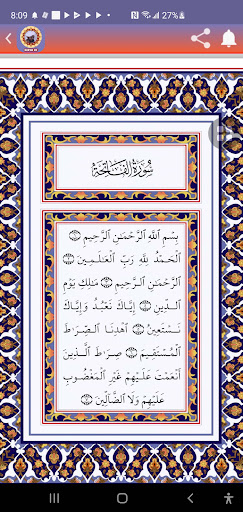 8:09
27%
سُورَةُ الفَاتِحَةِ
بِسْمِ ٱللَّهِ ٱلرَّحْمَٰنِ ٱلرَّحِيمِ ۝
ٱلْحَمْدُ لِلَّهِ رَبِّ ٱلْعَٰلَمِينَ ۝
ٱلرَّحْمَٰنِ ٱلرَّحِيمِ ۝ مَٰلِكِ يَوْمِ
ٱلدِّينِ ۝ إِيَّاكَ نَعْبُدُ وَإِيَّاكَ
نَسْتَعِينُ ۝ ٱهْدِنَا ٱلصِّرَٰطَ
ٱلْمُسْتَقِيمَ ۝ صِرَٰطَ ٱلَّذِينَ
أَنْعَمْتَ عَلَيْهِمْ غَيْرِ ٱلْمَغْضُوبِ
عَلَيْهِمْ وَلَا ٱلضَّآلِّينَ ۝